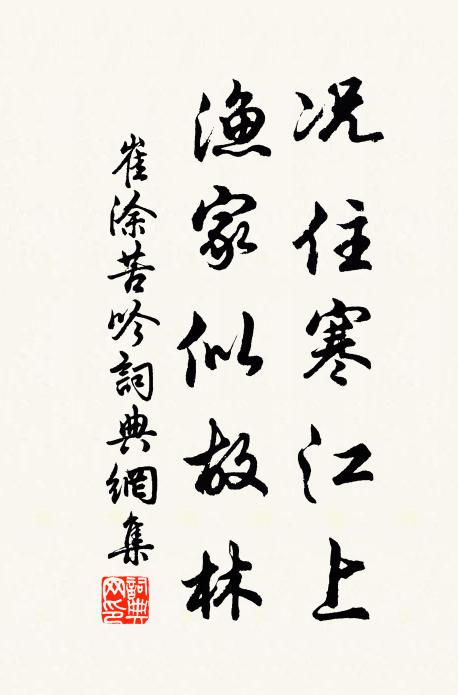 况住寒江上
渔家似故林
崔涂苦吟詞典網集
詞典网印